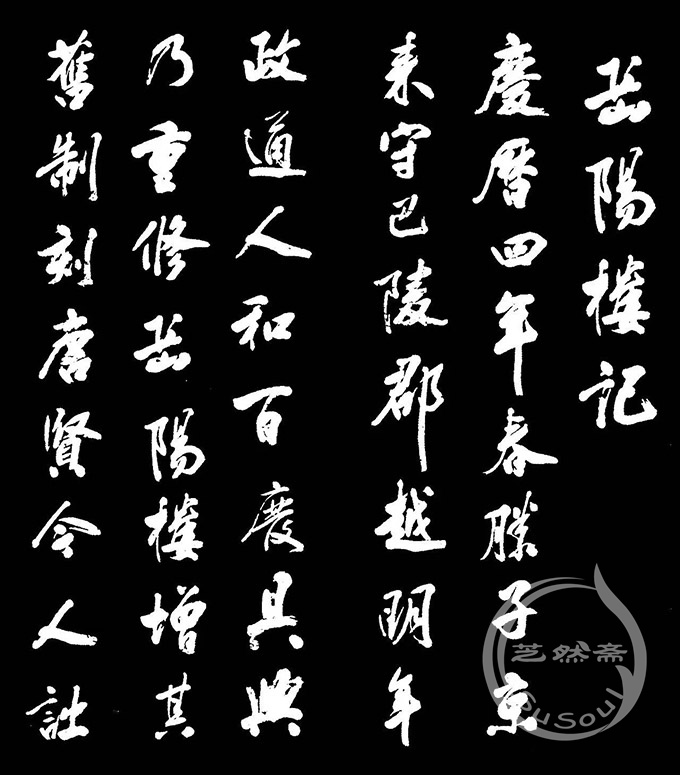 岳陽樓記
慶曆四年春滕子京
来守巴陵郡越明年
政通人和百廢具興
乃重修岳陽樓增其
舊制刻唐賢今人詩
芝然斋